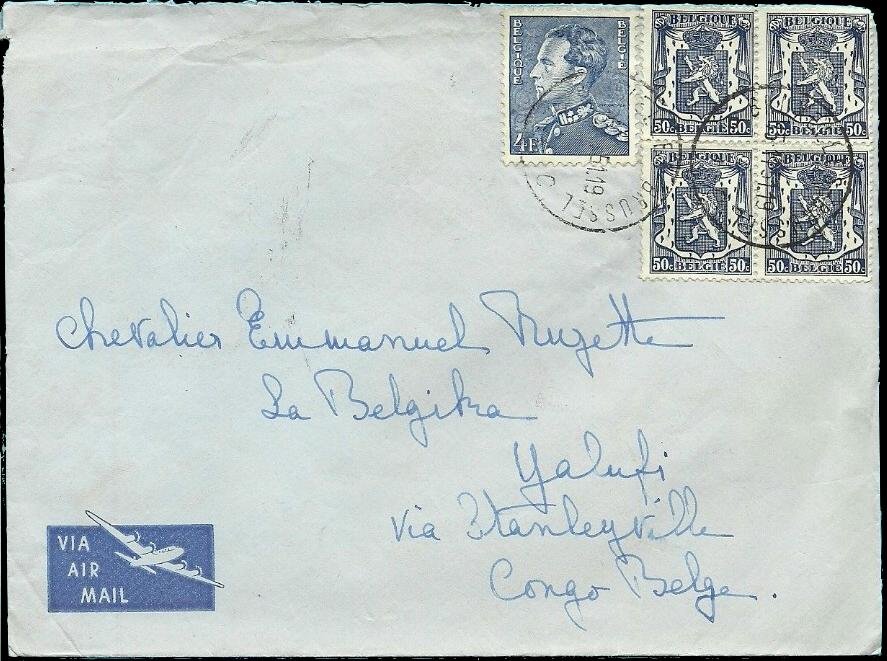 BELGIQUE BELGIE
4F
BELGIQUE
50c BELGIË 50c
BELGIQUE
50c BELGIË 50c
BELGIQUE
50c BELGIË 50c
BELGIQUE
50c BELGIË 50c
BRUSSEL
Chevalier Emmanuel Ruzette
La Belgika
Yalufi
via Stanleyville
Congo Belge.
VIA
AIR
MAIL